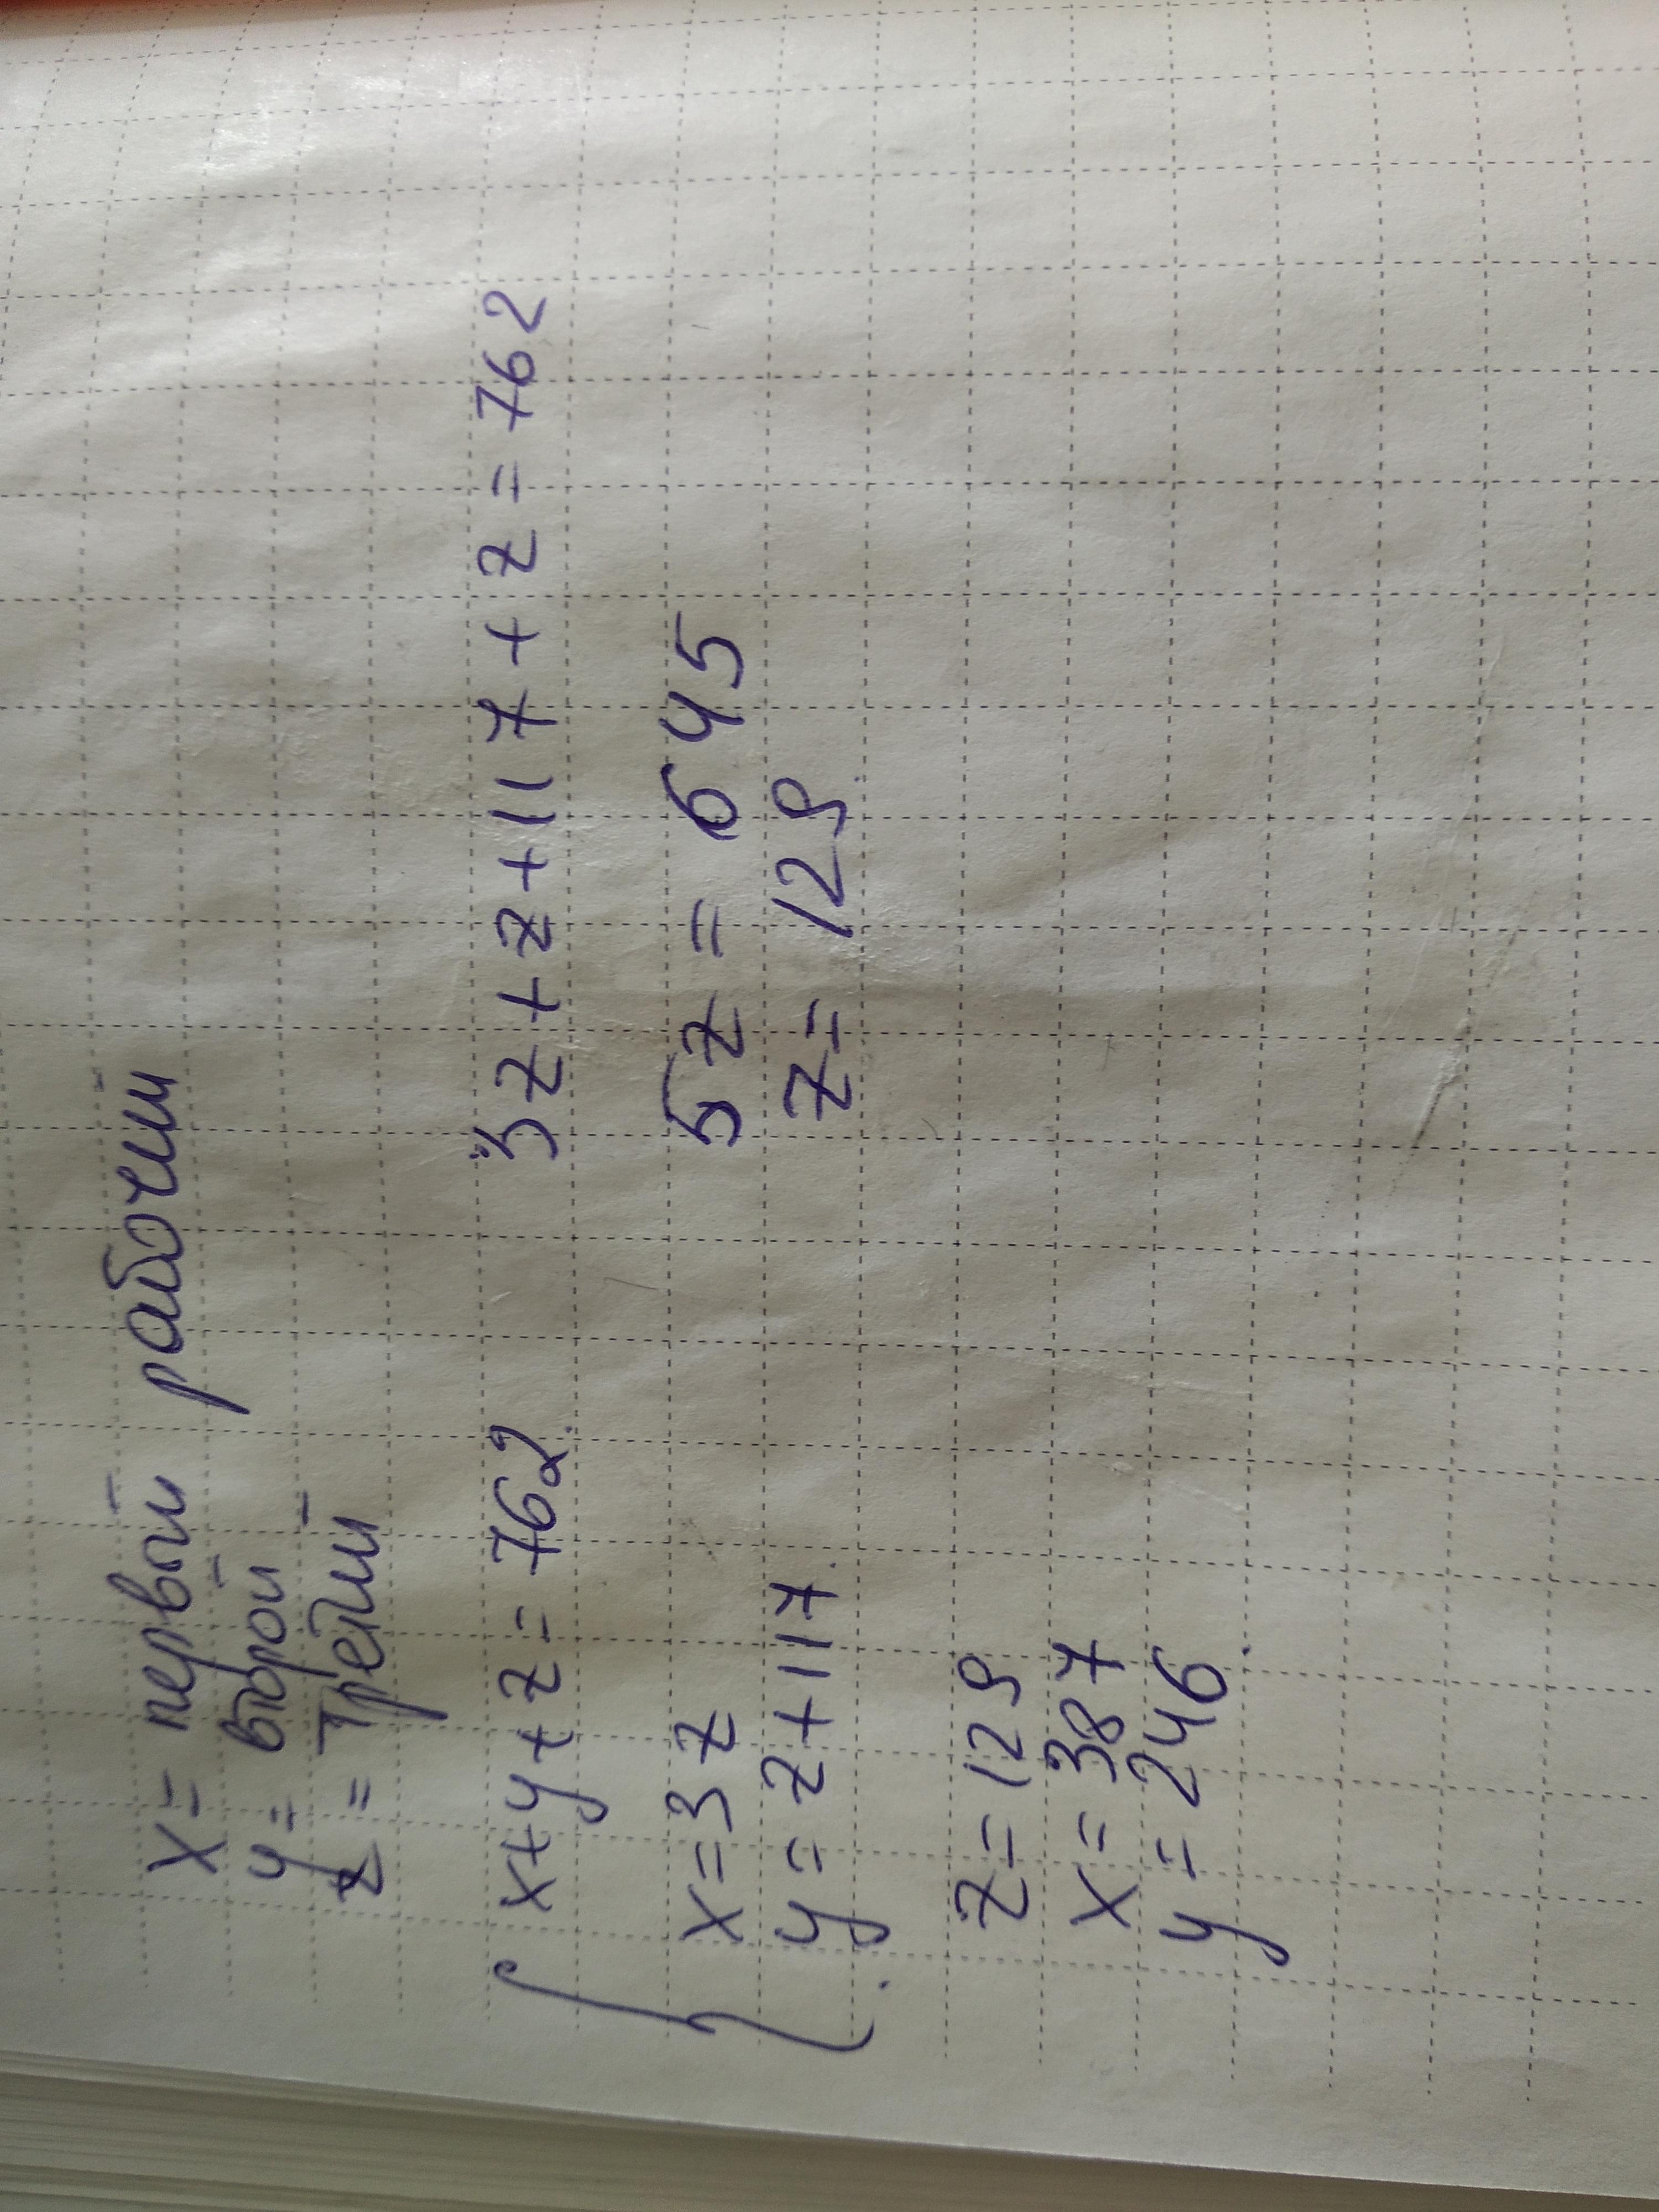 x = первый рабочий
y = второй
z = третий
x+y+z = 762
3z+z+117+z = 762
x = 3z
5z = 645
y = z+117
z = 129
z = 129
x = 387
y = 246